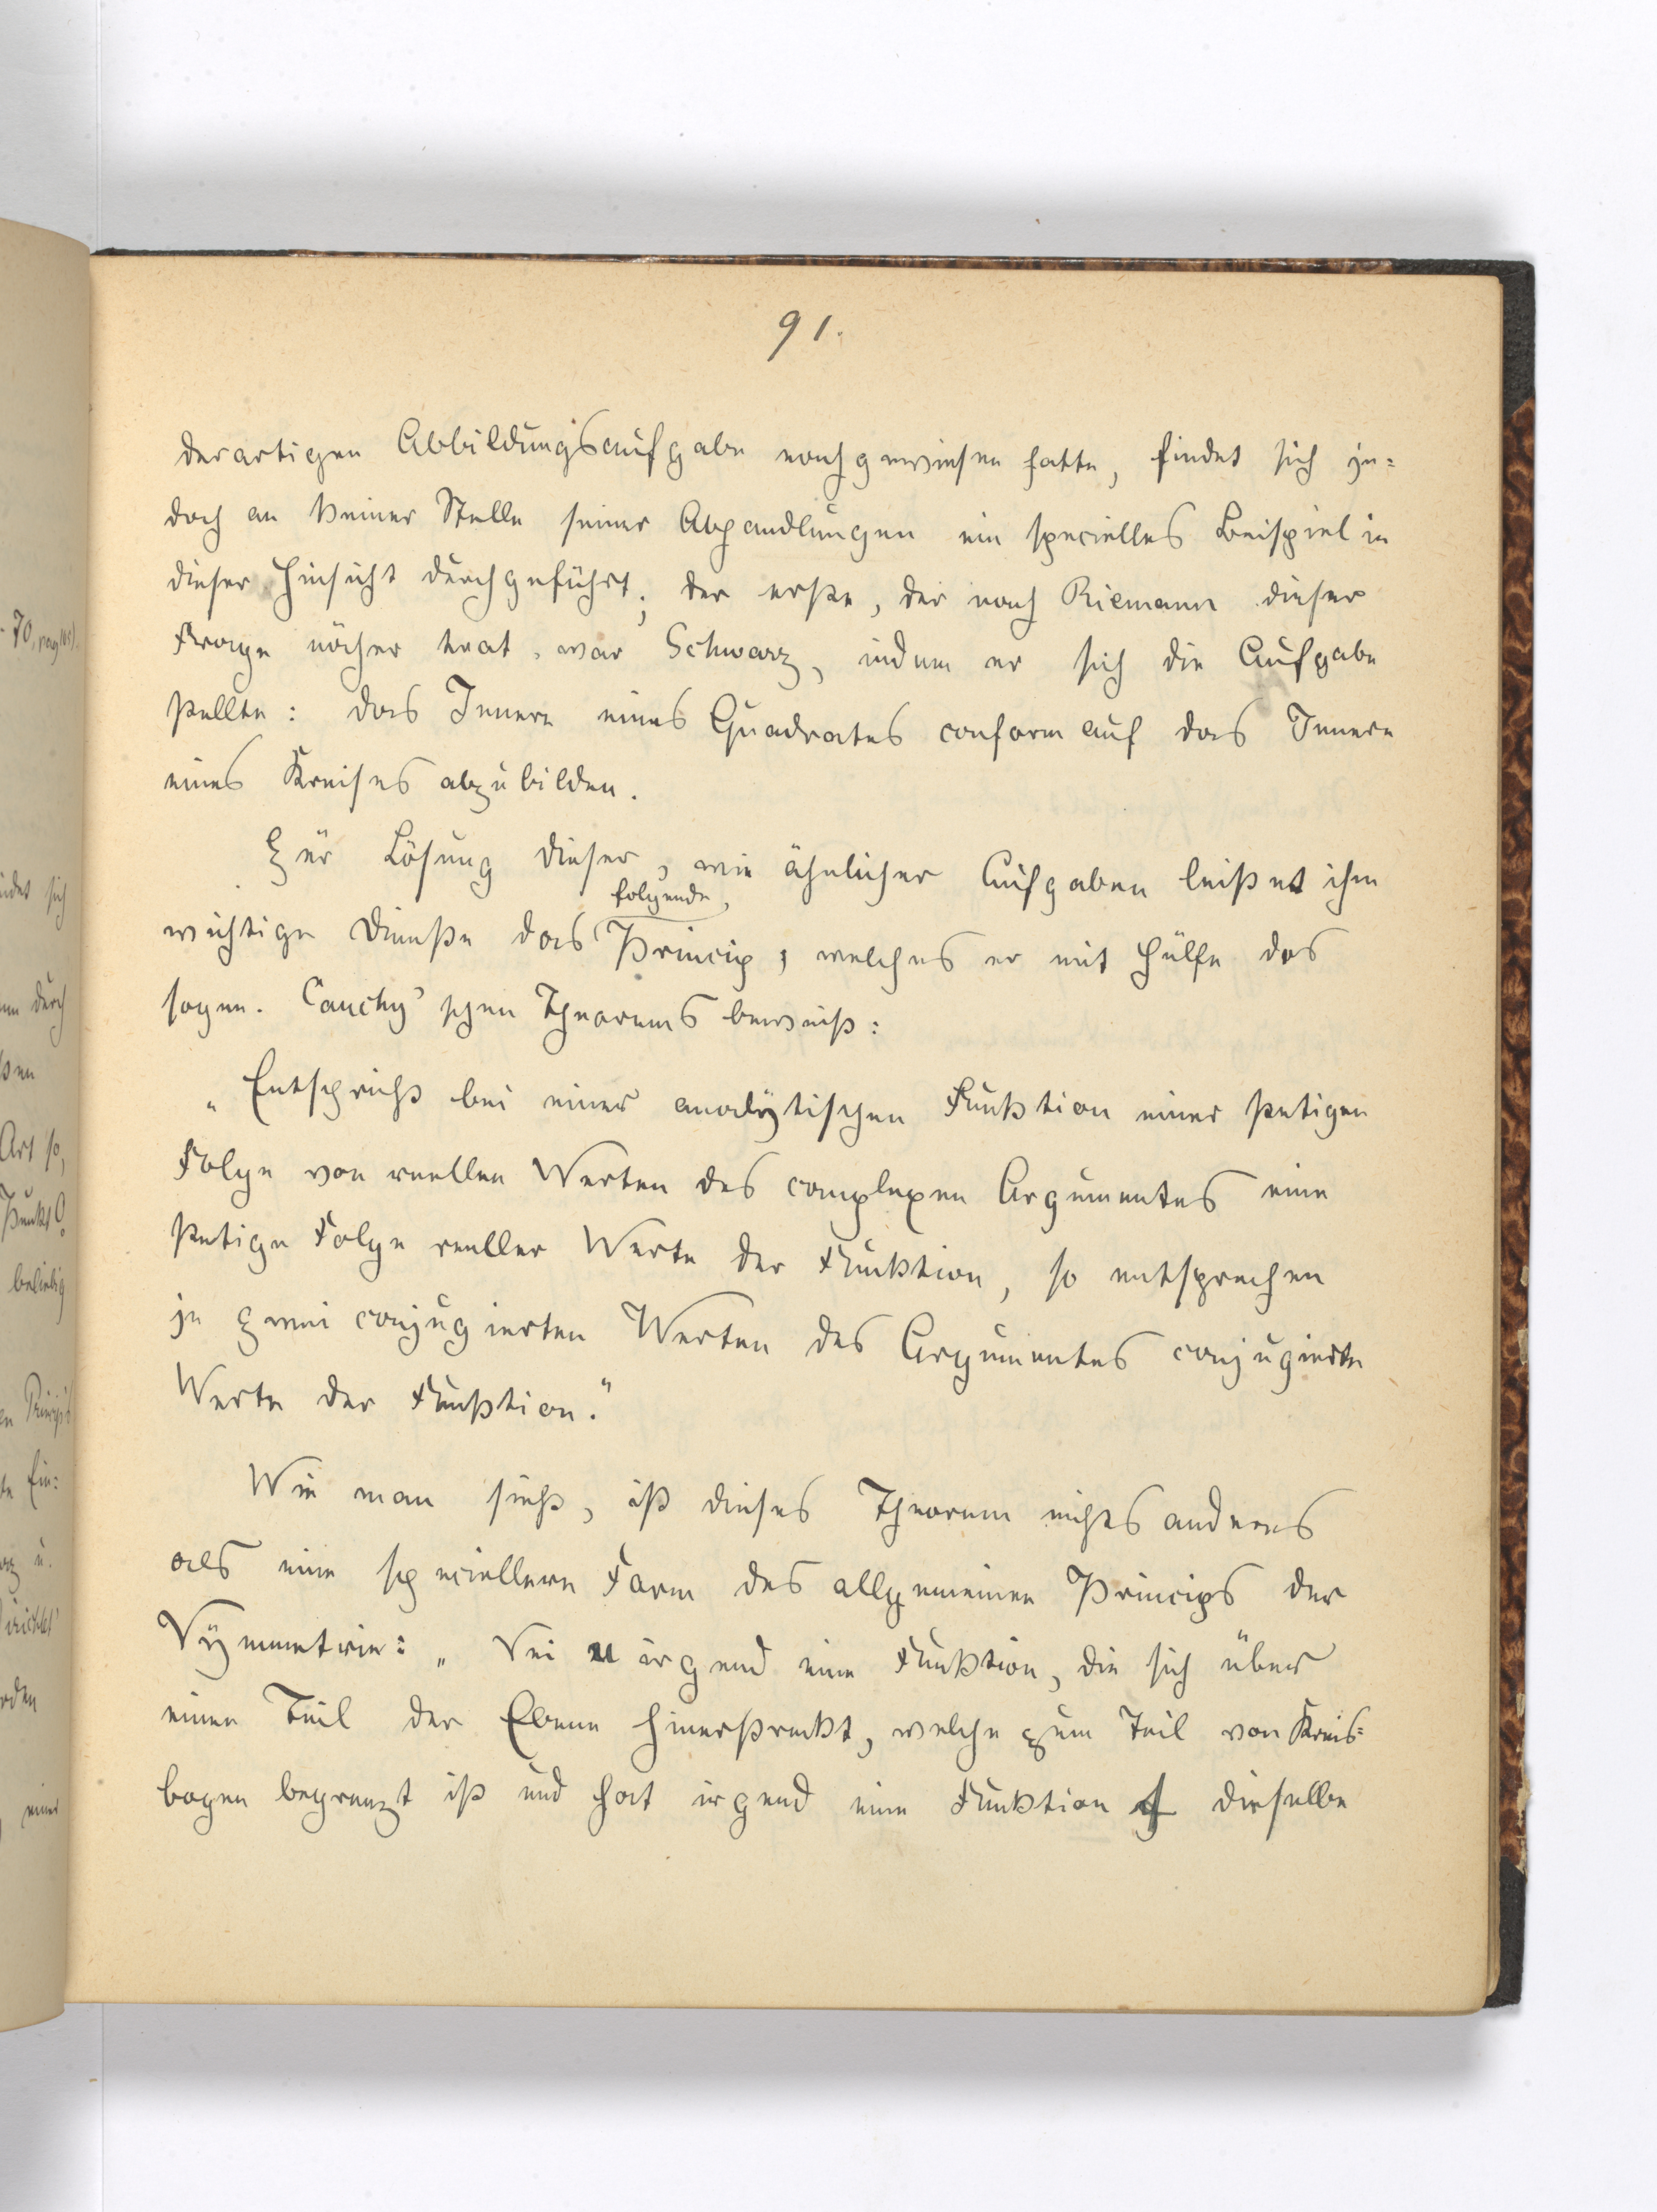 91.
derartigen Abbildungsaufgabe nachgewiesen hatte, findet sich je=
doch an keiner Stelle seiner Abhandlungen ein specielles Beispiel in
dieser Hinsicht durchgeführt; der erste, der nach Riemann dieser
Frage näher trat, war Schwarz, indem er sich die Aufgabe
stellte: das Innere eines Quadrates conform auf das Innere
eines Kreises abzubilden.
Zur Lösung dieser, wie ähnlicher Aufgaben leistet ihm
folgende,
wichtige Dienste das Princip, welches er mit Hülfe des
sogen. Cauchy'schen Theorems beweist:
„Entspricht bei einer analytischen Funktion einer stetigen
Folge von reellen Werten des complexen Argumentes eine
stetige Folge reeller Werte der Funktion, so entsprechen
je zwei conjugierten Werten des Argumentes conjugierte
Werte der Funktion."
Wie man sieht, ist dieses Theorem nichts anderes
als eine speciellere Form des allgemeinen Princips der
Symmetrie: „Sei u irgend eine Funktion, die sich über
einen Teil der Ebene hinerstreckt, welche zum Teil von Kreis=
bogen begrenzt ist und hat irgend eine Funktion f dieselbe
70, pag
idet sich
durch
Art so,
Punkt
beliebig
Princip
Ein=
u.
einer